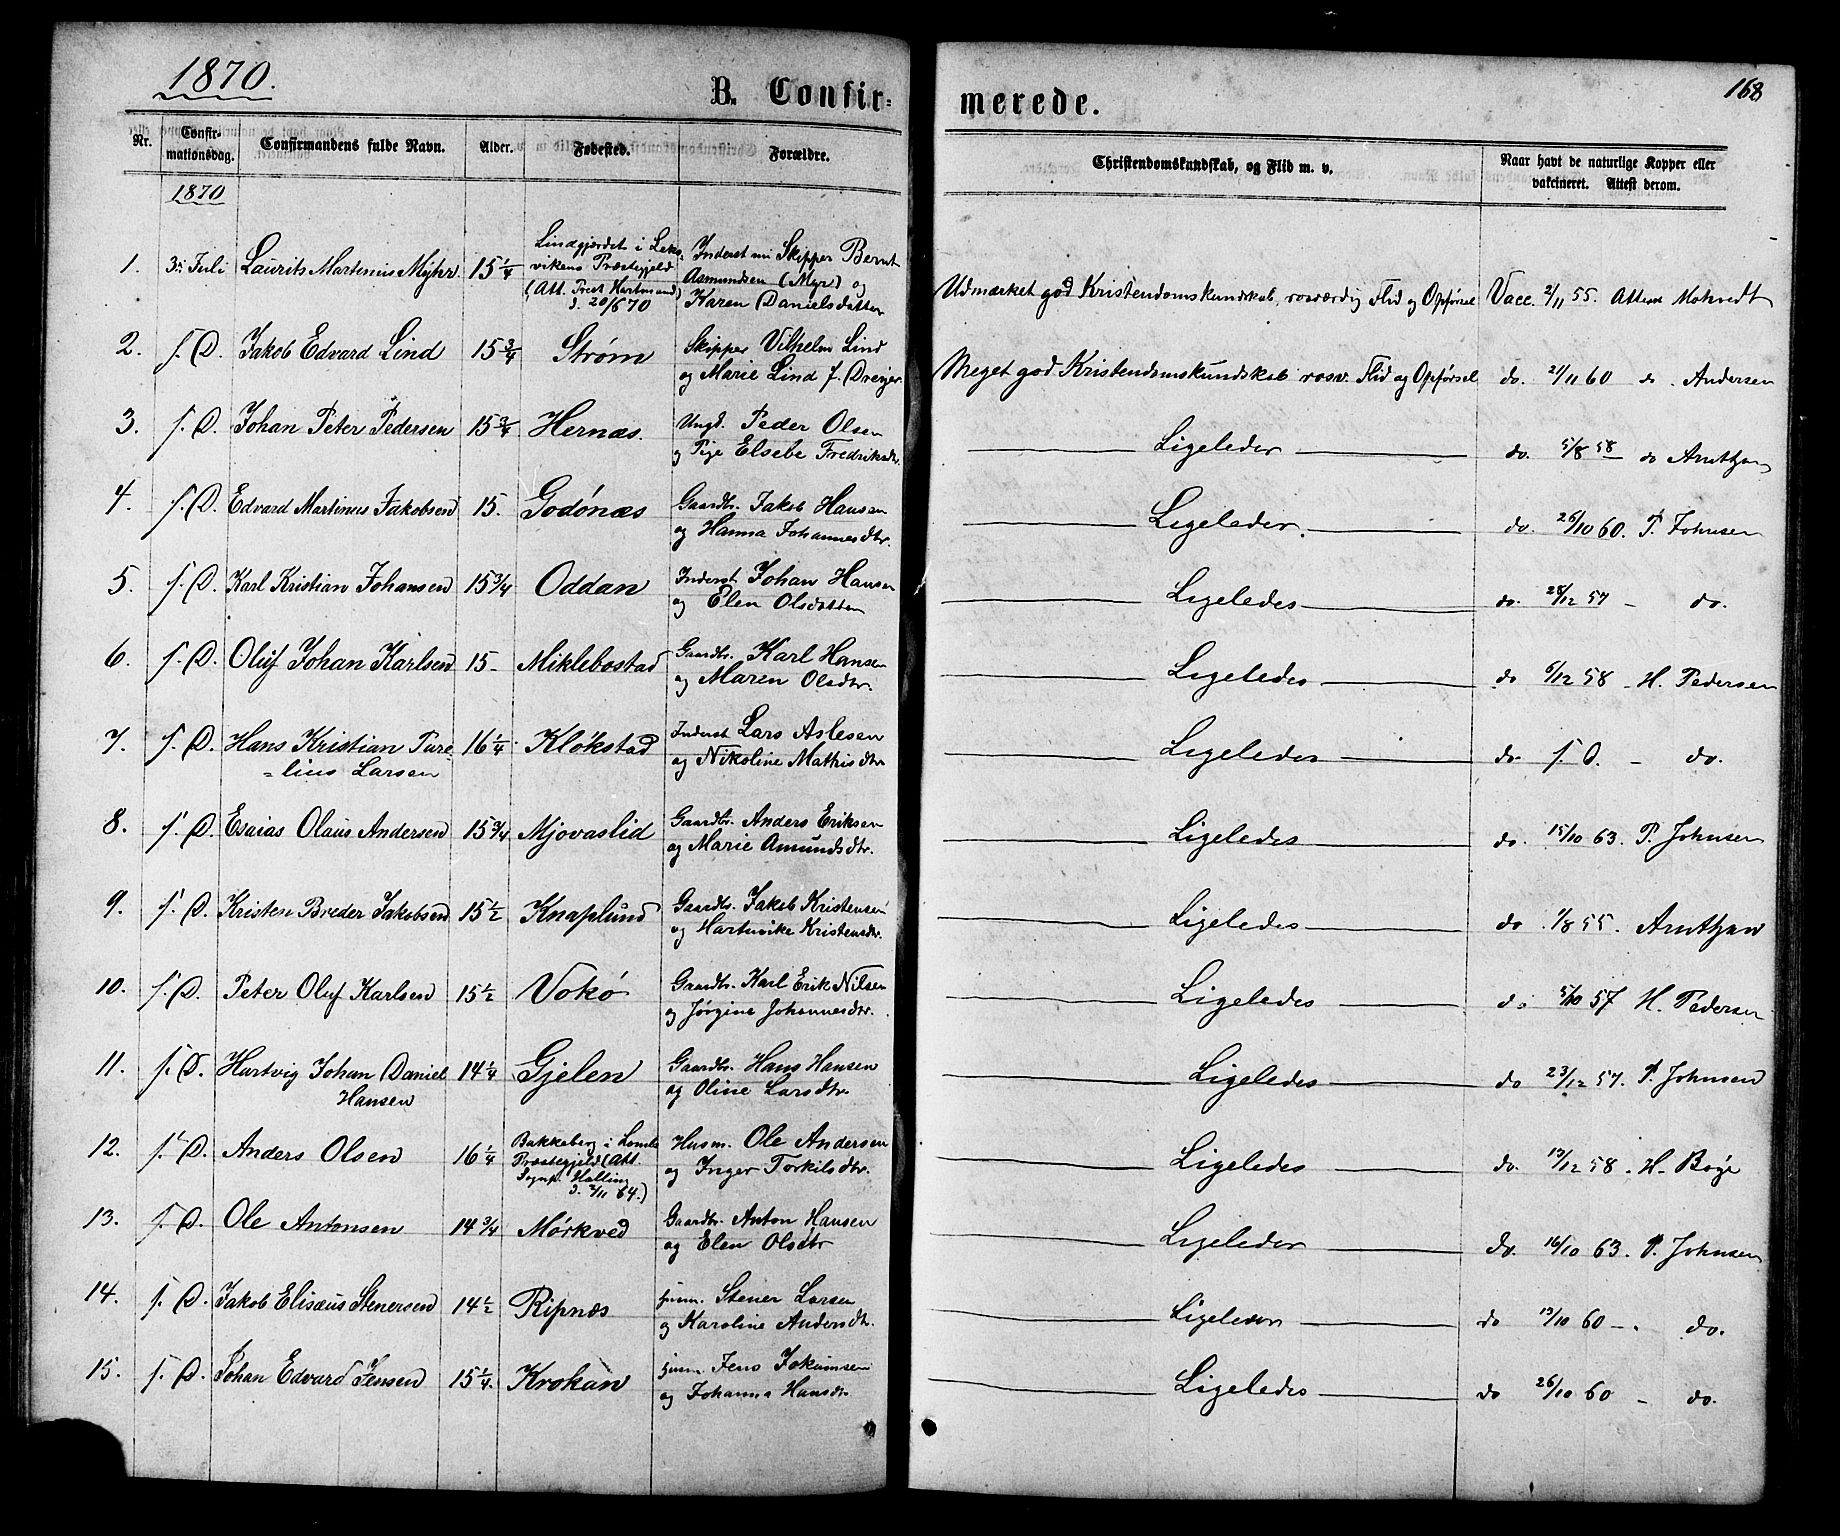 1870.
B. Confir-
merede.
168
Nr.
Confir-
mationsdag.
Confirmandens fulde Navn.
Alder.
Fødested.
Forældre.
Christendomskundskab, og Flid m. v.
Naar havt de naturlige Kopper eller
vakcineret. Attest derom.
1870
1. 3die Juli Laurits Martenius Myhr 15 1/4
Lindgjærdet i Leks-
vikens Præstegjeld
(Att. Prest Hartmand)
d. 20/6 70
Skipper Bernt
Asmundsen (Myr) og
Karen Danielsdatter
Udmærket god Kristendomskundskab, rosværdig Flid og Opførsel Vacc. 2/11 55. Attest Mohvedt
2. s. D. Jakob Edvard Lind 15 3/4 Strøm
Skipper Vilhelm Lind
og Marie Lind f. Dreyer
Meget god Kristendomskundskab rosv. Flid og Opførsel do. 21/11 60 do. Andersen
3. s. D. Johan Peter Pedersen 15 3/4 Hernæs.
Ungk. Peder Olsen
og Pige Elsebe Fredriksdtr.
Ligeledes do. 5/8 58 do Arntzen
4. s. D. Edvard Martinus Jakobsen 15. Godønæs
Gaardbr. Jakob Hansen
og Hanna Johannesdtr.
Ligeledes. do. 26/10 60. P. Johnsen
5. s. D. Karl Kristian Johansen 15 3/4 Oddan
Inderst Johan Hansen
og Elen Olsdatter
Ligeledes do. 28/12 57 - do.
6. s. D. Oluf Johan Karlsen 15 - Miklebostad
Gaardbr. Karl Hansen
og Maren Olsdtr.
Ligeledes do 6/12 58 - H. Pedersen
7. s. D. Hans Kristian Ture-
=lius Larsen
16 1/4 Kløkstad
Inderst Lars Aslesen
og Nikoline Mathisdtr
Ligeledes do s. D. - do.
8. s. D. Esaias Olaus Andersen 15 3/4 Mjovaslid
Gaardbr. Anders Eriksen
og Marie Amundsdtr.
Ligeledes do. 15/10 63. P. Johnsen
9. s. D. Kristen Breder Jakobsen 15 1/2 Knaplund
Gaardbr. Jakob Kristensen
og Hartvike Kristensdtr.
Ligeledes do 1/8 55. Arntzen
10. s. D. Peter Oluf Karlsen 15 1/2 Vokø
Gaardbr. Karl Erik Nilsen
og Jørgine Johannesdtr.
Ligeledes do 5/10 57 H. Pedersen
11. s. D. Hartvig Johan Daniel
Hansen
14 1/4 Gjelen
Gaardbr. Hans Hansen
og Oline Larsdtr
Ligeledes do 23/12 57. P. Johnsen
12. s. D. Anders Olsen 16 1/4
Bakkeberg i Lomb
Præstegjeld (Att.
Sognp. Halling
d. 2/11 64.)
Husm. Ole Andersen
og Inger Torkilsdtr.
Ligeledes do. 13/12 58 - H. Boye
13. s. D. Ole Antonsen 14 3/4 Mørkved
Gaardbr. Anton Hansen
og Elen Olsdtr
Ligeledes do. 16/10 63. P. Johnsen
14. s. D. Jakob Elisæus Stenersen 14 1/2 Ripnæs
Husm. Stener Larsen
og Karoline Andersdtr.
Ligeledes do 13/10 60 - . do.
15. s. D. Johan Edvard Jensen 15 1/4. Krokan
Husm. Jens Jokumsen
og Johanna Hansdtr
Ligeledes do 26/10 60 - do.